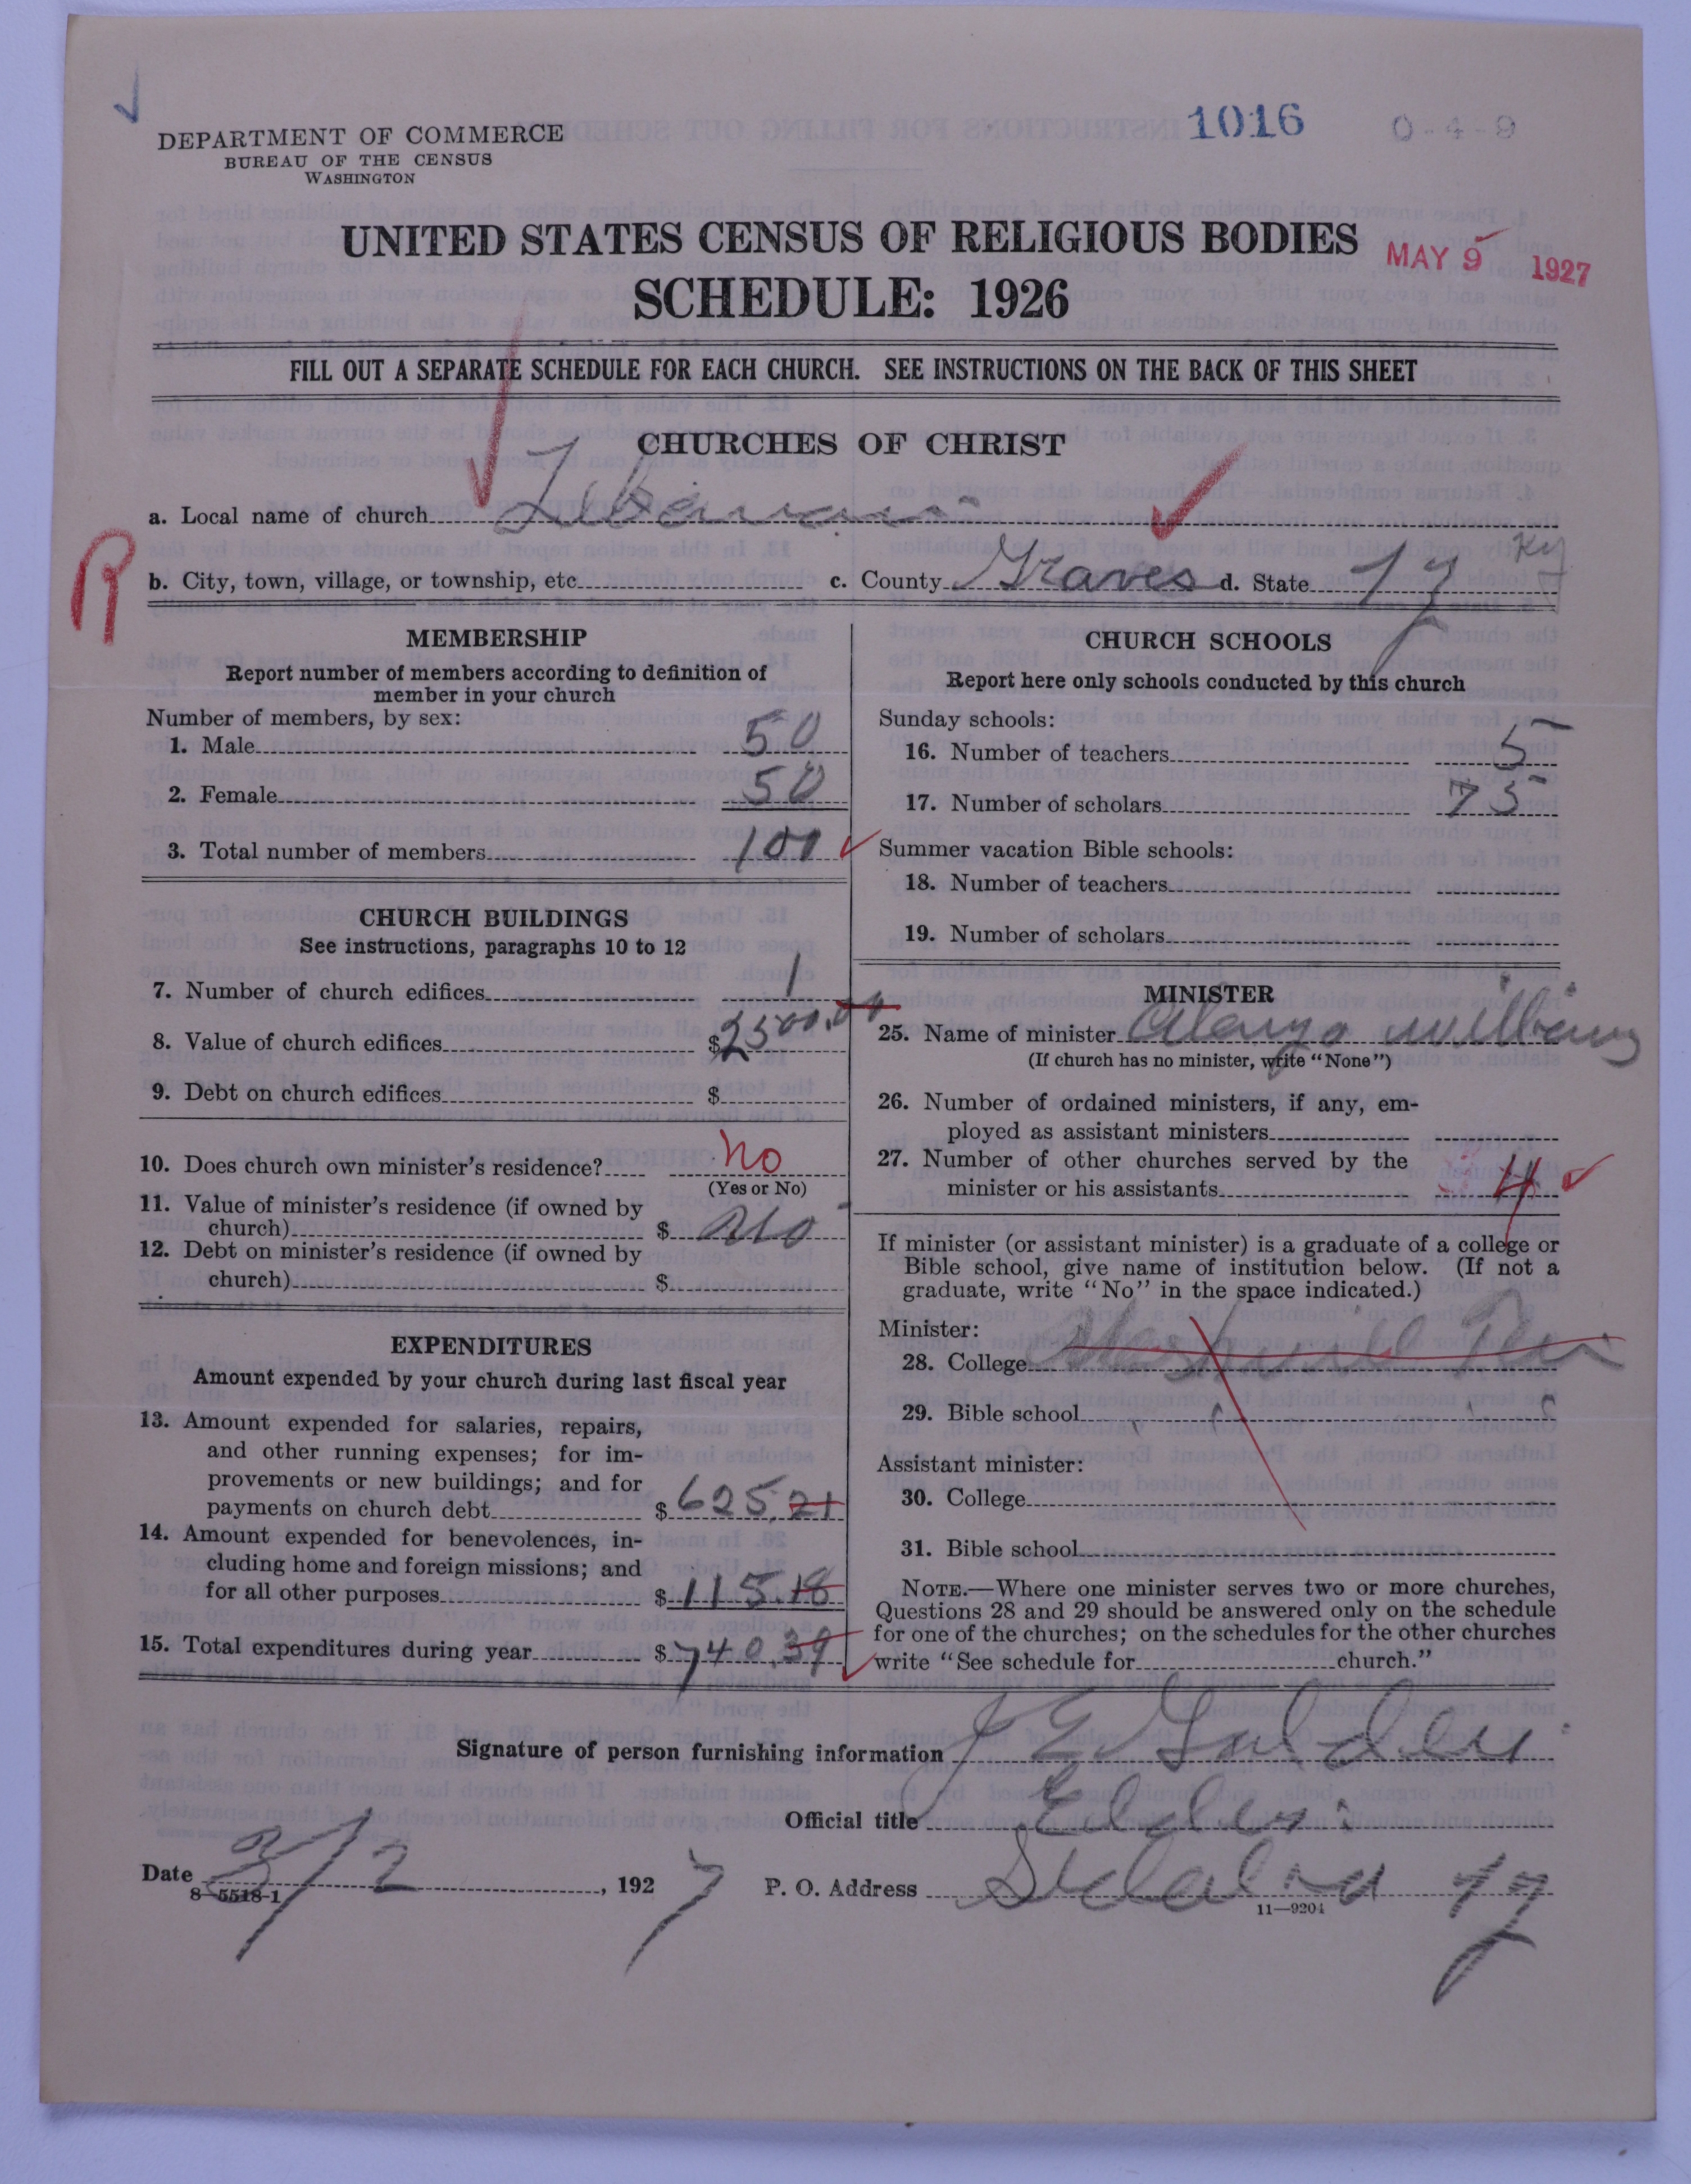 1016 0-4-9
DEPARTMENT OF COMMERCE
BUREAU OF THE CENSUS
WASHINGTON
UNITED STATES CENSUS OF RELIGIOUS BODIES
MAY 9 1927
SCHEDULE: 1926
FILL OUT A SEPARATE SCHEDULE FOR EACH CHURCH. SEE INSTRUCTIONS ON THE BACK OF THIS SHEET
CHURCHES OF CHRIST
a. Local name of church
R
b. City, town, village, or township, etc. c. County Graves d. State Ky Ky
MEMBERSHIP
Report number of members according to definition of
member in your church
Number of members, by sex:
1. Male 50
2. Female 50
3. Total number of members 100
CHURCH BUILDINGS
See instructions, paragraphs 10 to 12
7. Number of church edifices 1
8. Value of church edifices $2500.00
9. Debt on church edifices $
10. Does church own minister's residence? No
(Yes or No)
11. Value of minister's residence (if owned by
church) $ No
12. Debt on minister's residence (if owned by
church) $
EXPENDITURES
Amount expended by your church during last fiscal year
13. Amount expended for salaries, repairs,
and other running expenses; for im-
provements or new buildings; and for
payments on church debt $625.21
14. Amount expended for benevolences, in-
cluding home and foreign missions; and
for all other purposes $115.18
15. Total expenditures during year $740.39
CHURCH SCHOOLS
Report here only schools conducted by this church
Sunday schools:
16. Number of teachers 5
17. Number of scholars 75
Summer vacation Bible schools:
18. Number of teachers
19. Number of scholars
MINISTER
25. Name of minister Alonzo Williams
(If church has no minister, write "None")
26. Number of ordained ministers, if any, em-
ployed as assistant ministers
27. Number of other churches served by the
minister or his assistants 4
If minister (or assistant minister) is a graduate of a college or
Bible school, give name of institution below. (If not a
graduate, write "No" in the space indicated.)
Minister:
28. College
29. Bible school
Assistant minister:
30. College
31. Bible school
NOTE.—Where one minister serves two or more churches,
Questions 28 and 29 should be answered only on the schedule
for one of the churches; on the schedules for the other churches
write "See schedule for church."
Signature of person furnishing information J E
Official title Elder
Date 3/2, 1927 P. O. Address Sedalia Ky
8-5518-1
11—9204